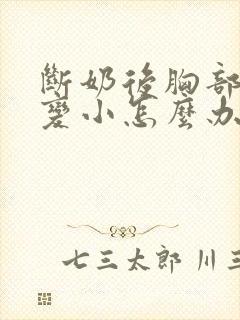 斷奶後胸部
變小怎麼办
七三太郎 川三